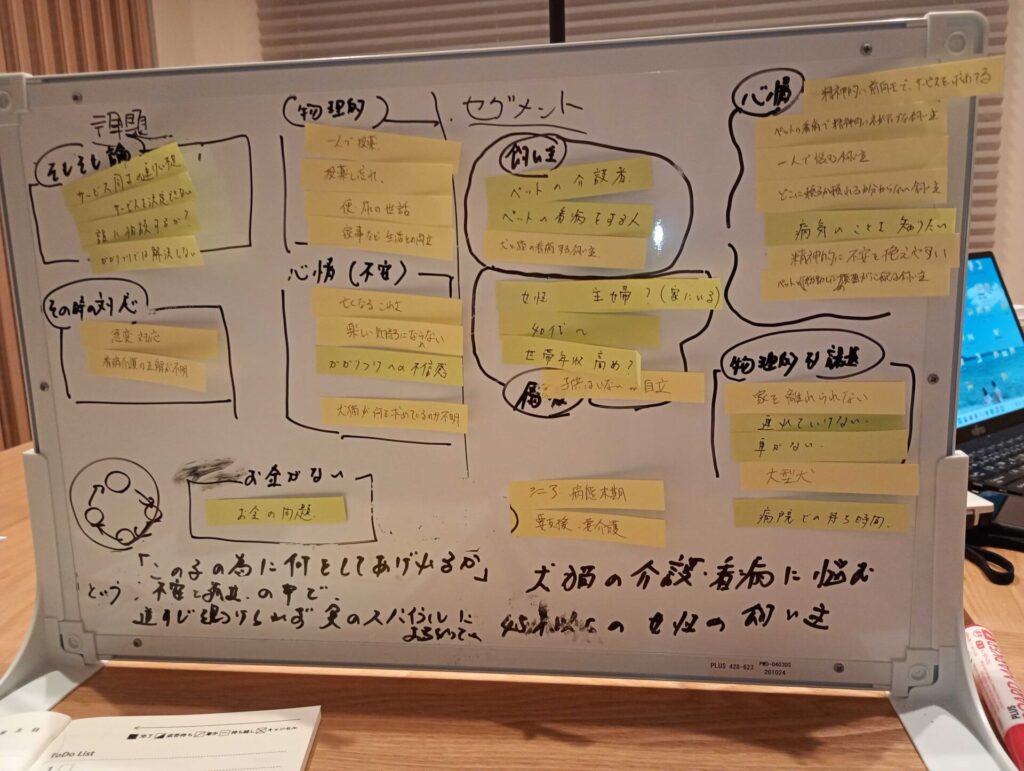 課題
そもそも論
サービス同士の連携不足
サービスを決定できない
誰に相談するか?
かかりつけでは解決しない
その時の対応
急変対応
看病介護の正解が不明
物理的
一人で投薬
投薬し忘れ、
便 尿の世話
家事など生活との両立
心情(不安)
亡くなること
楽しい気持にならない
かかりつけへの不信感
犬猫が何を求めているのか不明
お金がない
お金の問題
セグメント
飼い主
ペットの介護者
ペットの看病をする人
犬猫の看病する飼い主
女性 主婦?(家にいる)
40代〜
世帯年収 高め?
子供はいない or 自立
シニア 病気末期
要支援 要介護
心情
精神的に前向きで、サービスを求めてる
ペットの看病で精神的に
飼い主
一人で悩む飼い主
どこに頼るか頼れるか分からない飼い主
病気のことを知りたい
精神的に不安を抱えやすい
ペット
飼い主
物理的
家を離れられない
連れていけない
車がない
大型犬
病院での待ち時間
「この子の為に何をしてあげれるか」
という 不安と の中で、
道すじ見つけられず 負のスパイラルに
犬猫の介護・看病に悩む
の女性の飼い主
PLUS 428-623 PWD-0403DS
201024
完了
キャンセル
ToDo List
PLUS